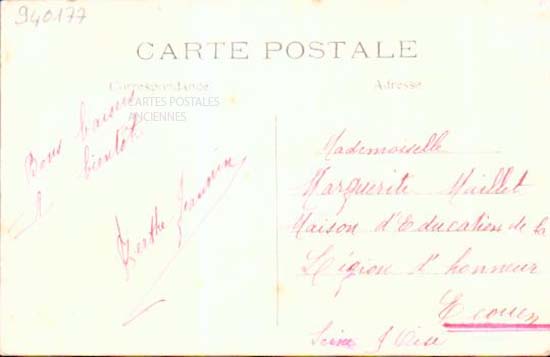 940177
CARTE POSTALE
Correspondance
Adresse
CARTES POSTALES
ANCIENNES
Bons baisers
A bientôt
Berthe Jeannin
Mademoiselle
Marguerite Maillet
Maison d'Education de la
Légion d'honneur
Ecouen
Seine & Oise